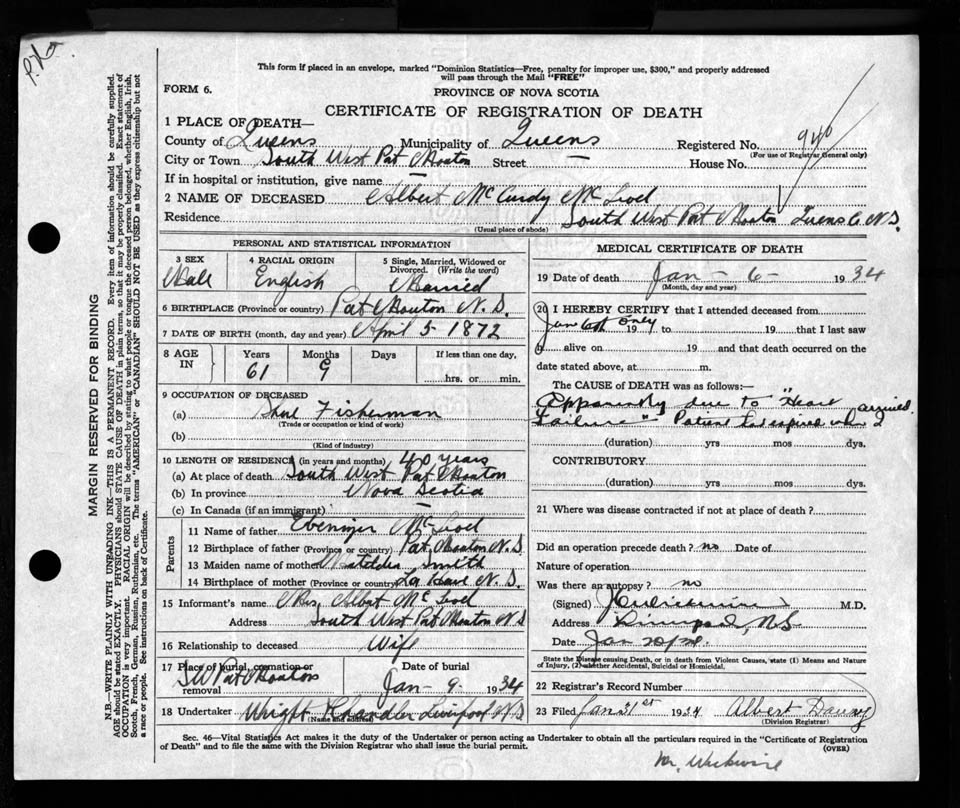 This form if placed in an envelope, marked "Dominion Statistics—Free, penalty for improper use, $300," and properly addressed
will pass through the Mail "FREE"
FORM 6.
PROVINCE OF NOVA SCOTIA
CERTIFICATE OF REGISTRATION OF DEATH
1 PLACE OF DEATH—
County of Queens Municipality of Queens Registered No. 940
(For use of Registrar General only)
City or Town South West Port Mouton Street — House No.
If in hospital or institution, give name —
2 NAME OF DECEASED Albert McCurdy McLeod
Residence South West Port Mouton Queens Co N.S.
(Usual place of abode)
PERSONAL AND STATISTICAL INFORMATION
3 SEX Male
4 RACIAL ORIGIN English
5 Single, Married, Widowed or Divorced. (Write the word) Married
6 BIRTHPLACE (Province or country) Port Mouton N.S.
7 DATE OF BIRTH (month, day and year) April 5 1872
8 AGE IN Years 61 Months 9 Days If less than one day, hrs. or min.
9 OCCUPATION OF DECEASED
(a) Shore Fisherman
(Trade or occupation or kind of work)
(b)
(Kind of industry)
10 LENGTH OF RESIDENCE (in years and months) 40 years
(a) At place of death South West Port Mouton
(b) In province Nova Scotia
(c) In Canada (if an immigrant) —
Parents
11 Name of father Ebenizer McLeod
12 Birthplace of father (Province or country) Port Mouton N.S
13 Maiden name of mother Matilda Smith
14 Birthplace of mother (Province or country) La Have N.S.
15 Informant's name Mrs Albert McLeod
Address South West Port Mouton N S
16 Relationship to deceased Wife
17 Place of burial, cremation or removal S W Port Mouton
Date of burial Jan - 9 - 1934
18 Undertaker Wright Chandler Liverpool N S
(Name and address)
MEDICAL CERTIFICATE OF DEATH
19 Date of death Jan - 6 - 1934
(Month, day and year)
20 I HEREBY CERTIFY that I attended deceased from
Jan 6th only 19 to 19 that I last saw
h alive on 19 and that death occurred on the
date stated above, at m.
The CAUSE OF DEATH was as follows:—
Apparently due to "Heart
Failure" - Patient had expired when I arrived.
(duration) yrs mos. dys.
CONTRIBUTORY
(duration) yrs mos. dys.
21 Where was disease contracted if not at place of death?
Did an operation precede death? no Date of
Nature of operation
Was there an autopsy? no
(Signed) M.D.
Address Liverpool, N.S
Date Jan 20/34
State the Disease causing Death, or in death from Violent Causes, state (1) Means and Nature
of Injury, (2) whether Accidental, Suicidal or Homicidal.
22 Registrar's Record Number
23 Filed Jan 31st 1934 Albert
(Division Registrar)
Sec. 46—Vital Statistics Act makes it the duty of the Undertaker or person acting as Undertaker to obtain all the particulars required in the "Certificate of Registration
of Death" and to file the same with the Division Registrar who shall issue the burial permit.
(OVER)
MARGIN RESERVED FOR BINDING
N.B.—WRITE PLAINLY WITH UNFADING INK—THIS IS A PERMANENT RECORD. Every item of information should be carefully supplied.
AGE should be stated EXACTLY. PHYSICIANS should STATE CAUSE OF DEATH in plain terms, so that it may be properly classified. Exact statement of
OCCUPATION is very important. RACIAL ORIGIN will be described by stating to what people or tongue the deceased person belonged, whether English, Irish,
Scotch, French, German, Russian, Ruthenian, etc. The terms "AMERICAN" or "CANADIAN" SHOULD NOT BE USED as they express citizenship but not
a race or people. See instructions on back of Certificate.